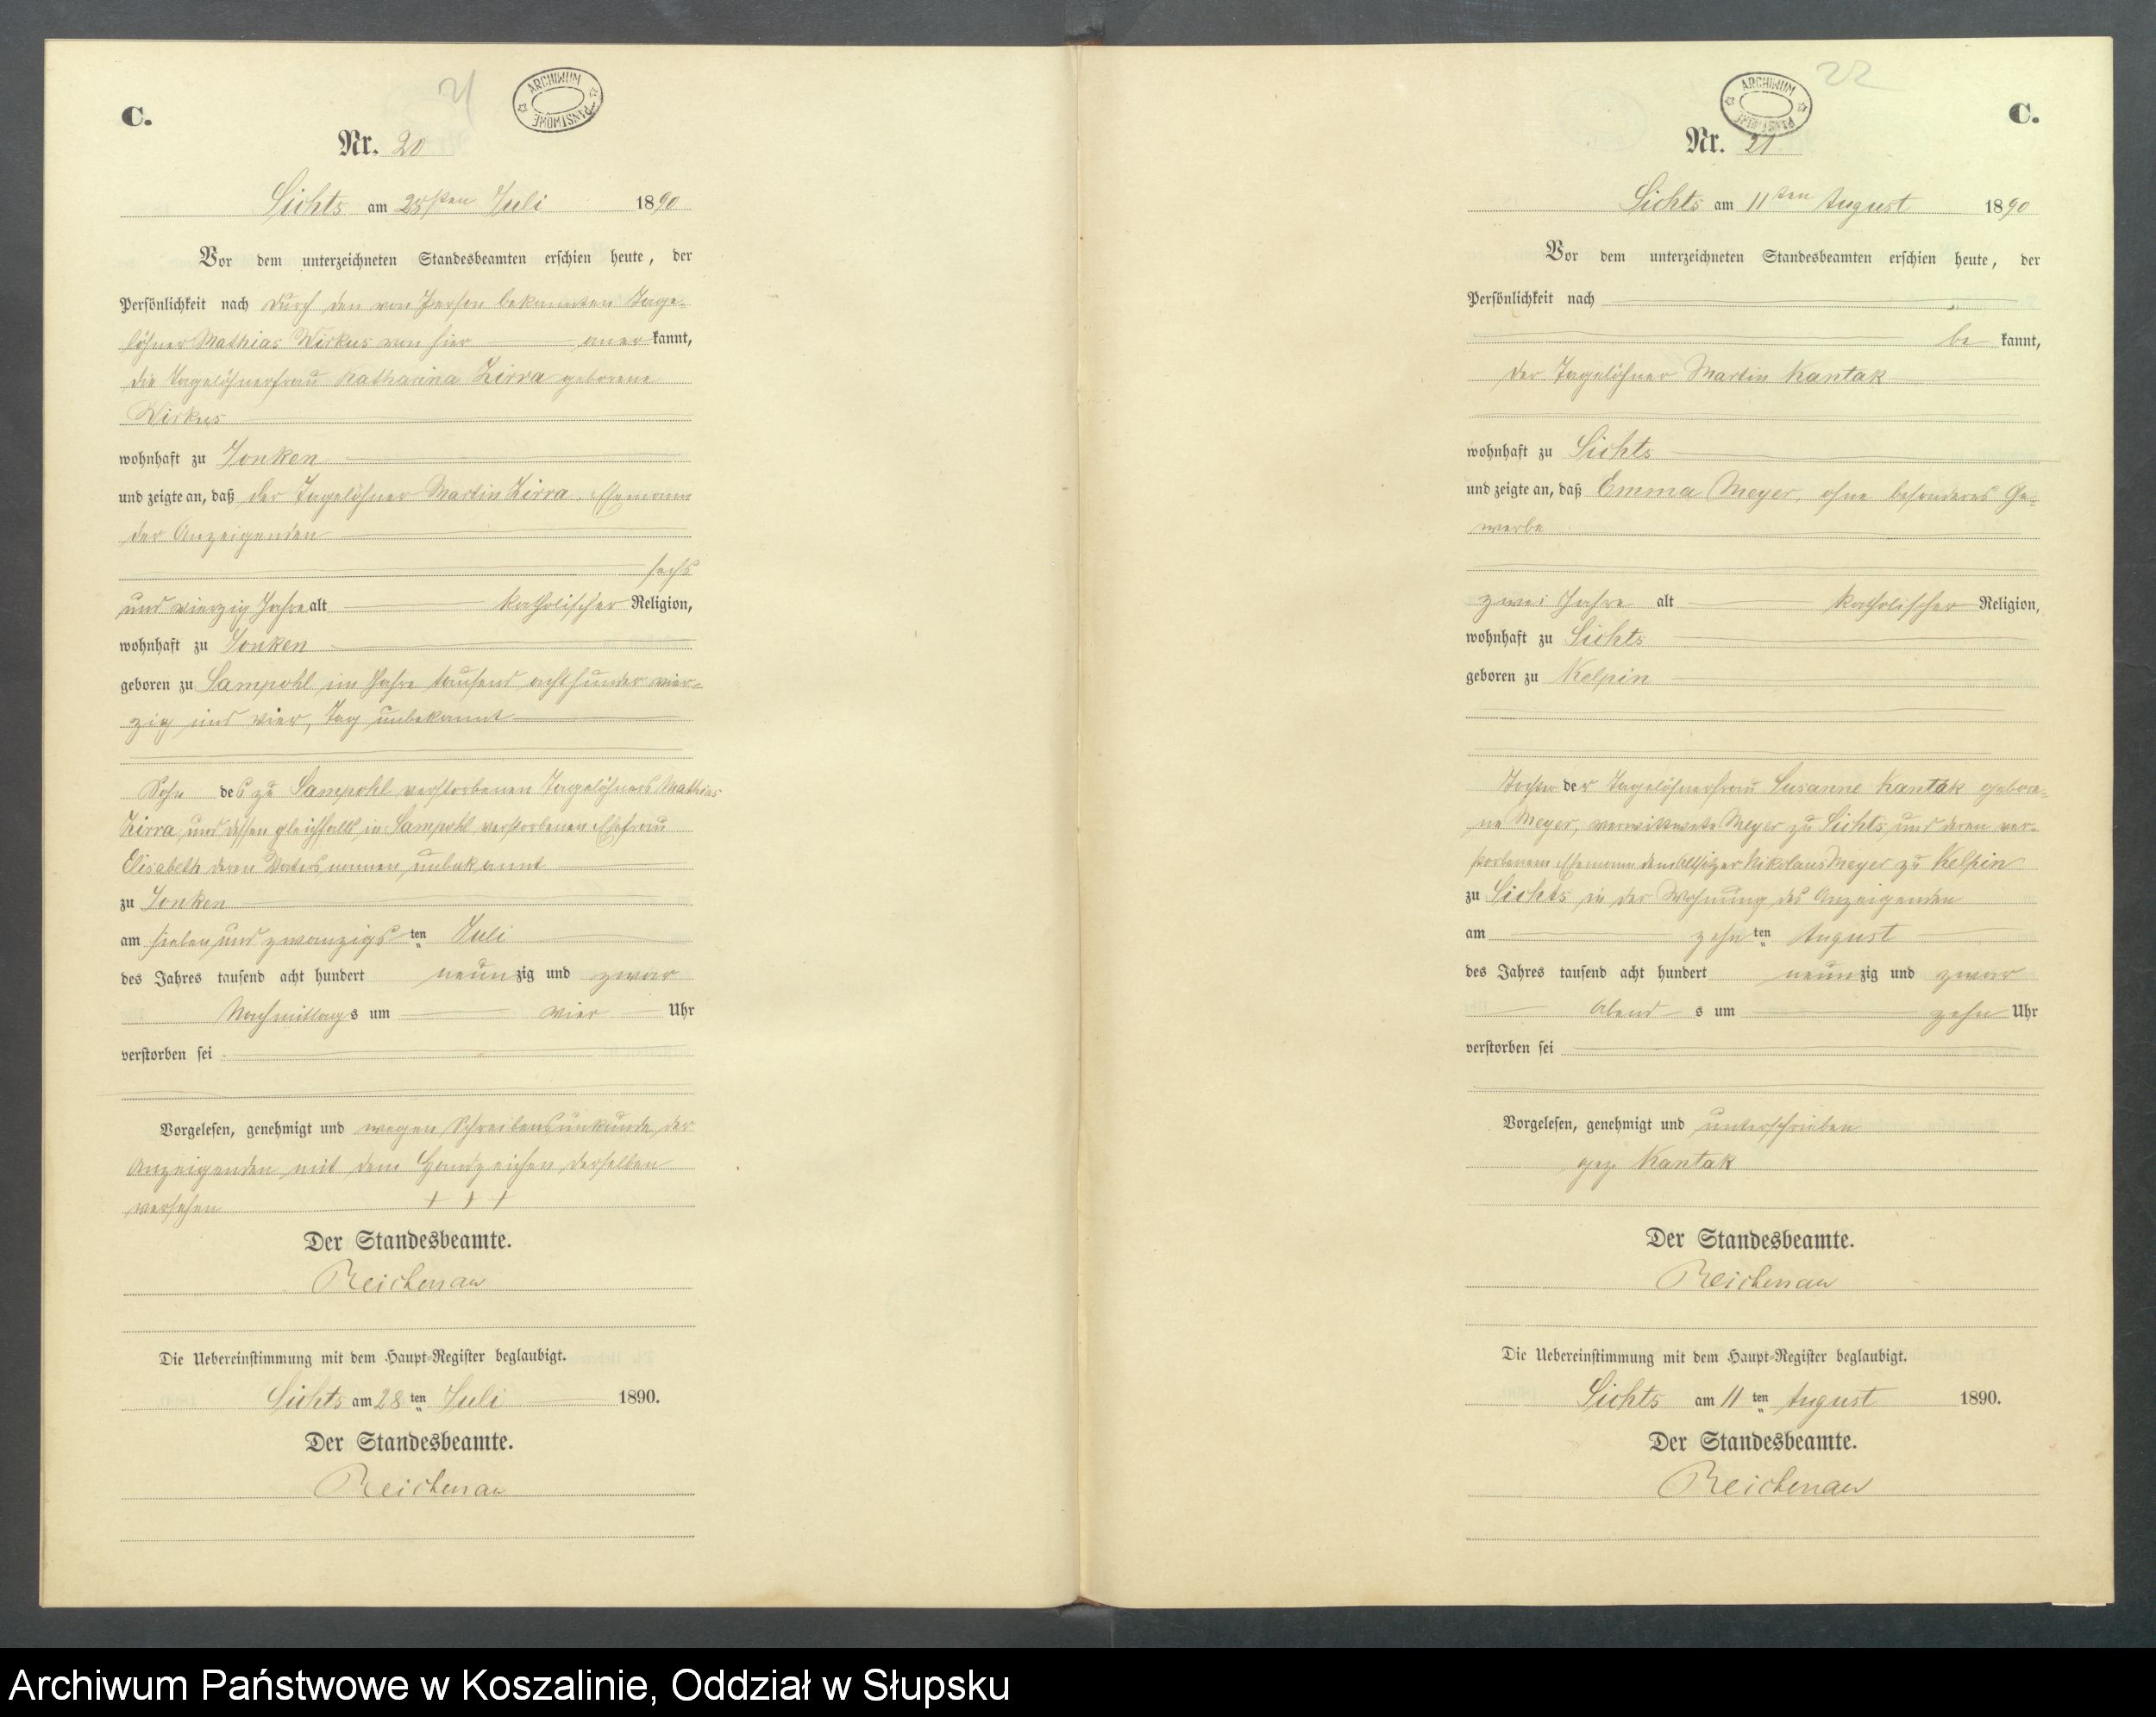 21
ARCHIWUM PAŃSTWOWE
C.
Nr. 20
Sichts am 28sten Juli 1890
Vor dem unterzeichneten Standesbeamten erschien heute, der
Persönlichkeit nach durch den von Person bekannten Tage-
löhner Mathias Wirkus von hier anerkannt,
die Tagelöhnerfrau Katharina Zirra geborene
Wirkus
wohnhaft zu Jonken
und zeigte an, daß der Tagelöhner Martin Zirra, Ehemann
der Anzeigenden
sechs
und vierzig Jahre alt katholischer Religion,
wohnhaft zu Jonken
geboren zu Sampohl im Jahre tausend achthunder vier-
zig und vier, Tag unbekannt
Sohn des zu Sampohl verstorbenen Tagelöhners Mathias
Zirra und dessen gleichfalls in Sampohl verstorbenen Ehefrau
Elisabeth deren Vatersnamen unbekannt
zu Jonken
am sieben und zwanzigsten Juli
des Jahres tausend acht hundert neunzig und zwar
Nachmittags um vier Uhr
verstorben sei
Vorgelesen, genehmigt und wegen Schreibensunkunde der
Anzeigenden mit dem Handzeichen derselben
versehen + + +
Der Standesbeamte.
Reichenau
Die Uebereinstimmung mit dem Haupt-Register beglaubigt.
Sichts am 28ten Juli 1890.
Der Standesbeamte.
Reichenau
22
ARCHIWUM PAŃSTWOWE
C.
Nr. 21
Sichts am 11ten August 1890
Vor dem unterzeichneten Standesbeamten erschien heute, der
Persönlichkeit nach
bekannt,
der Tagelöhner Martin Kantak
wohnhaft zu Sichts
und zeigte an, daß Emma Meyer, ohne besonderes Ge-
werbe
zwei Jahre alt katholischer Religion,
wohnhaft zu Sichts
geboren zu Kelpin
Tochter der Tagelöhnerfrau Susanne Kantak gebore-
ne Meyer, verwittwete Meyer zu Sichts und deren ver-
storbenem Ehemann dem Altsitzer Nikolaus Meyer zu Kelpin
zu Sichts in der Wohnung des Anzeigenden
am zehnten August
des Jahres tausend acht hundert neunzig und zwar
Abends um zehn Uhr
verstorben sei
Vorgelesen, genehmigt und unterschrieben
gez. Kantak
Der Standesbeamte.
Reichenau
Die Uebereinstimmung mit dem Haupt-Register beglaubigt.
Sichts am 11ten August 1890.
Der Standesbeamte.
Reichenau
Archiwum Państwowe w Koszalinie, Oddział w Słupsku